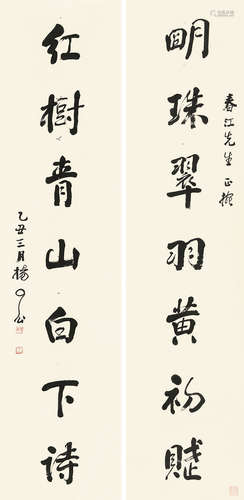 明珠翠羽黄初赋
春江先生正撥
红树青山白下诗
乙丑三月